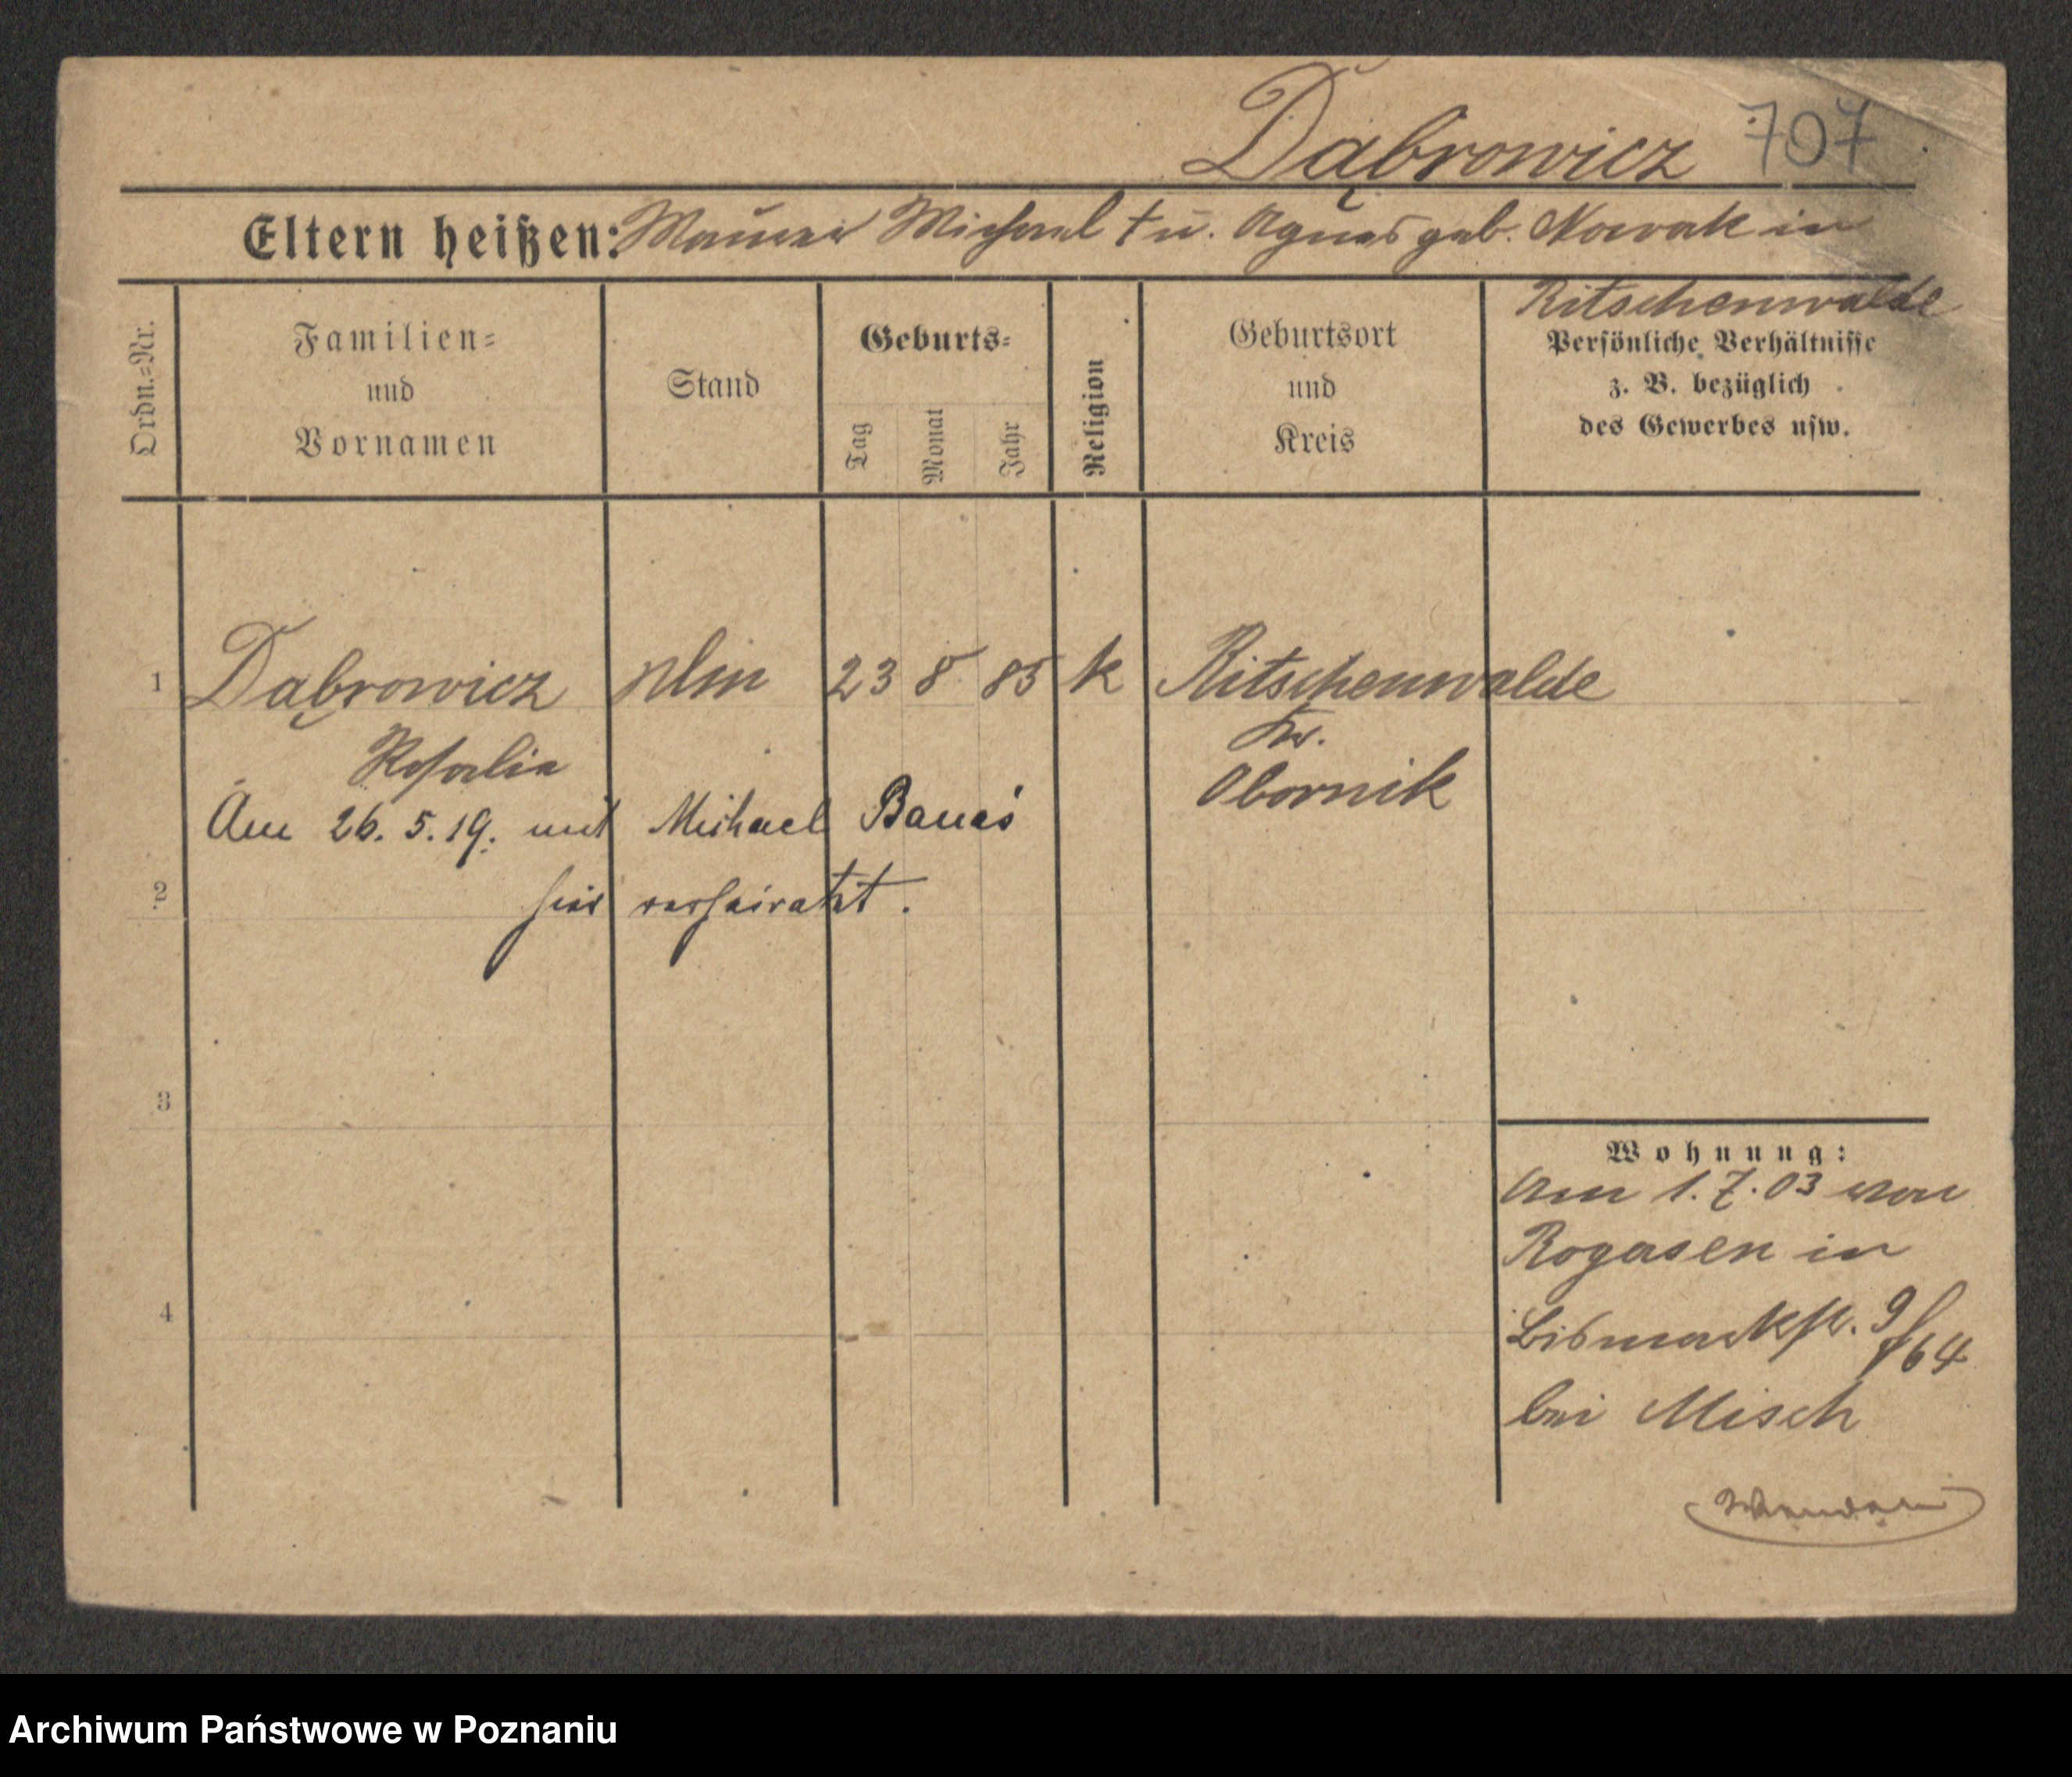 Dąbrowicz 707
Eltern heißen: Maurer Michael † u. Agnes geb. Nowak in
Ritschenwalde
Ordn.=Nr.
Familien=
und
Vornamen
Stand
Geburts=
Tag
Monat
Jahr
Religion
Geburtsort
und
Kreis
Persönliche Verhältnisse
z. B. bezüglich
des Gewerbes usw.
1 Dąbrowicz 23 8 85 k Ritschenwalde
Rosalia Kr.
Obornik
Am 26.5.19. mit Michael Banaś
2 hier verheiratet.
3
4
Wohnung:
Am 1.7.03 von
Rogasen in
Bismarckstr. 9/64
bei Misch
Archiwum Państwowe w Poznaniu